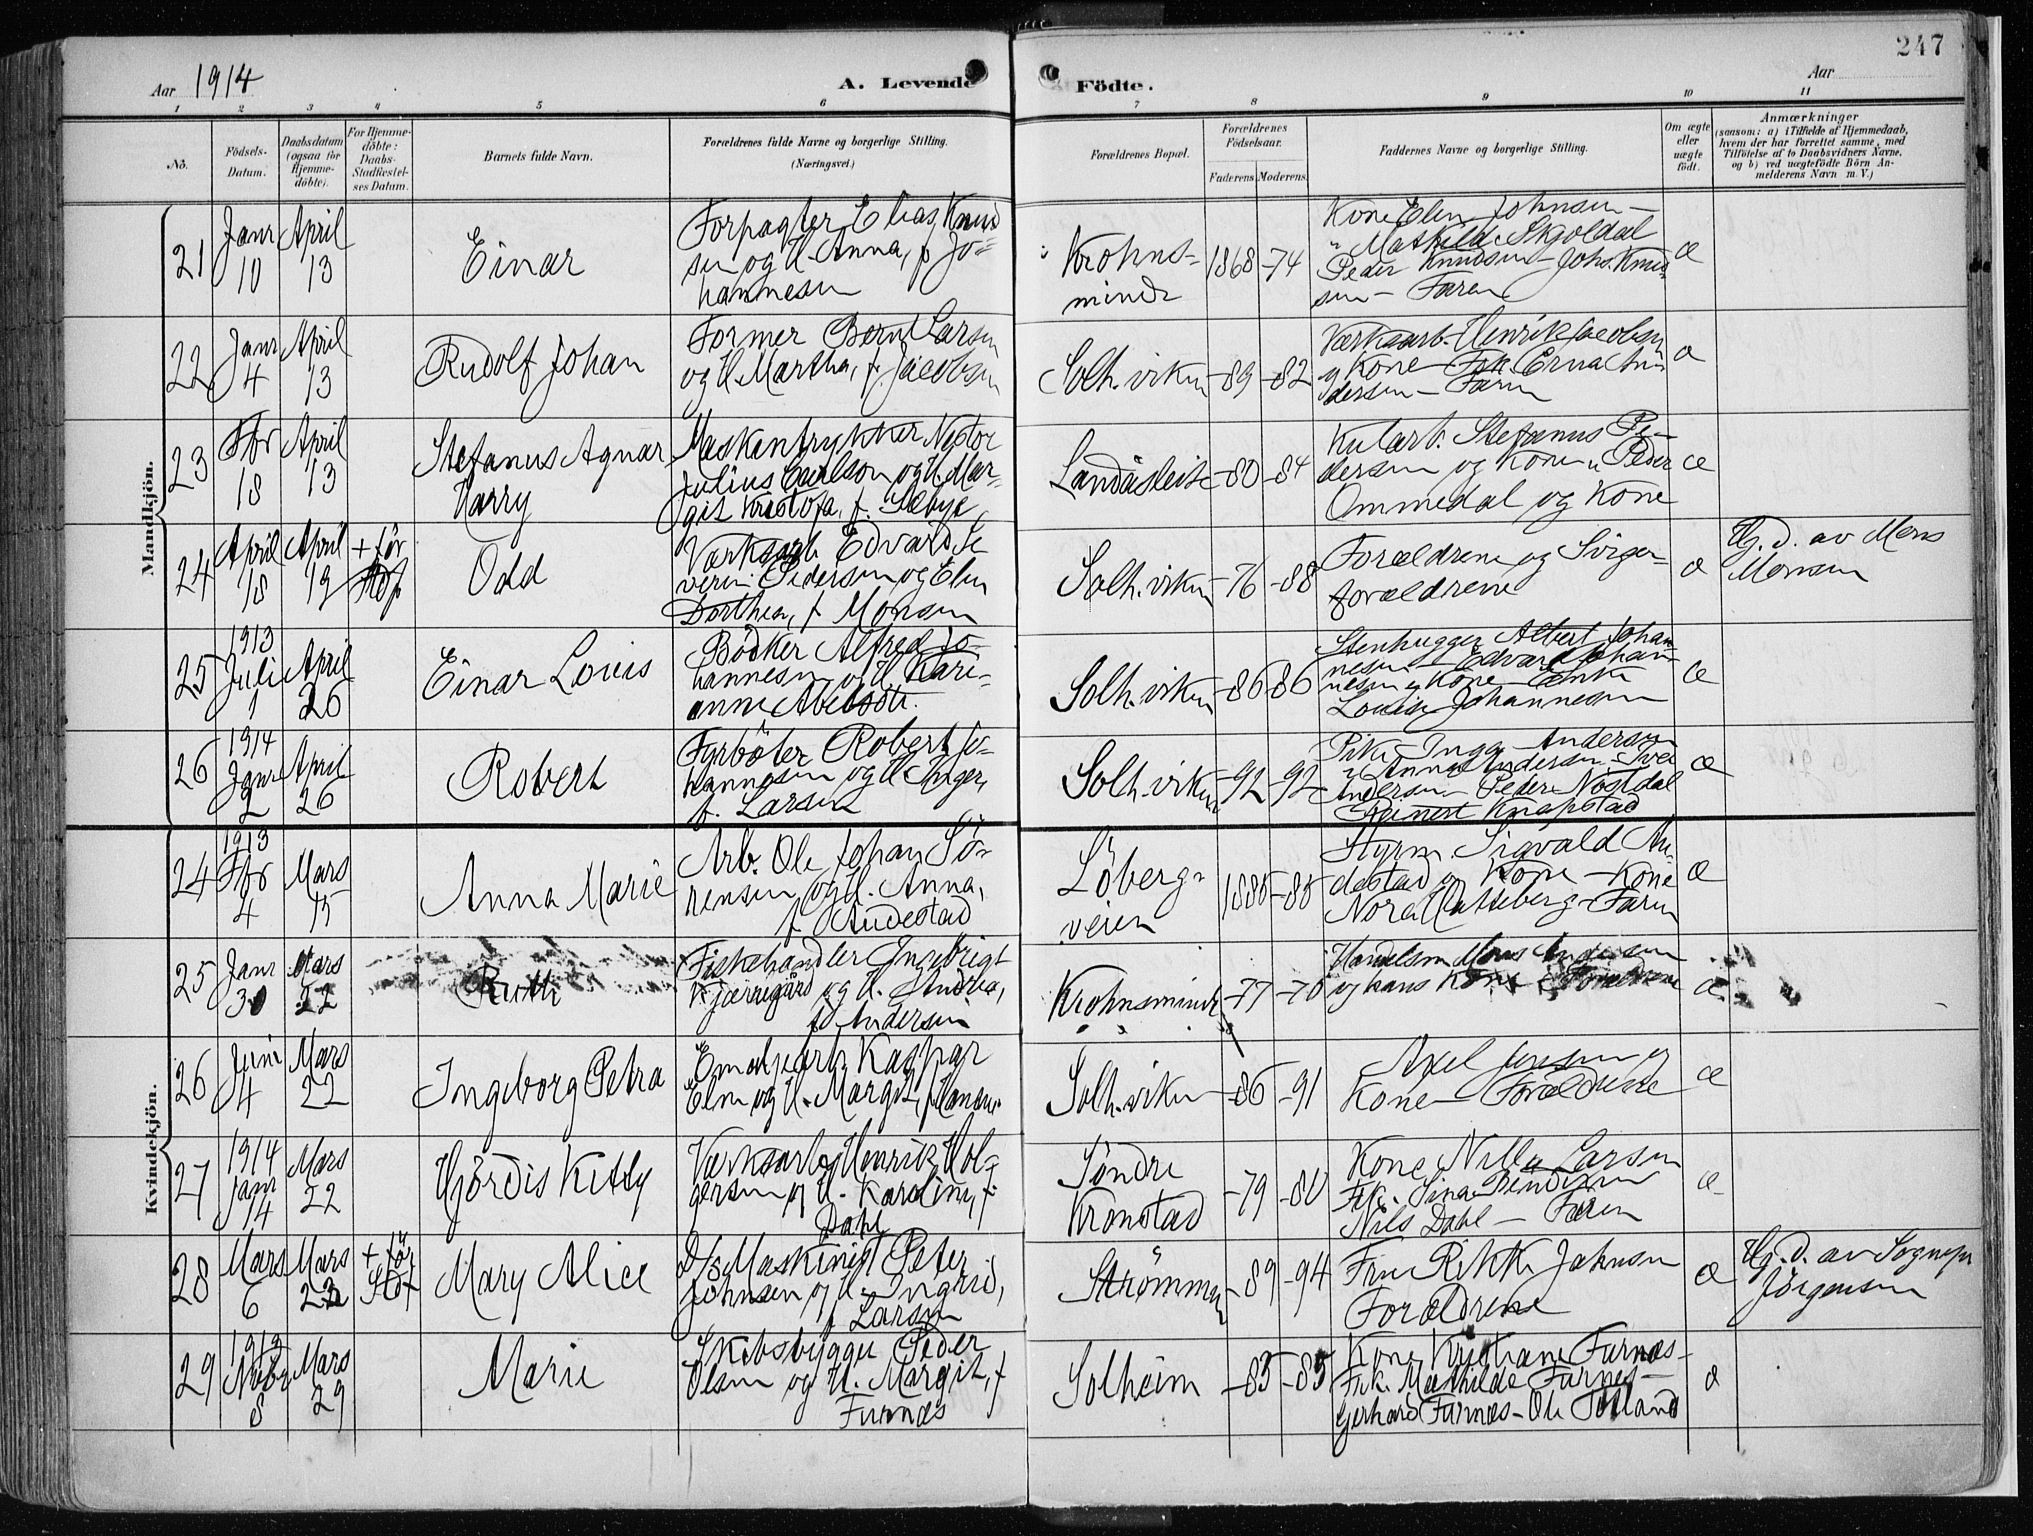 247
Aar 1914
A. Levende Födte.
Aar
1 2 3 4 5 6 7 8 9 10 11
No.
Födsels-Datum.
Daabsdatum (ogsaa for Hjemme-döbte).
For Hjemme-döbte: Daabs-Stadfæstel-ses Datum.
Barnets fulde Navn.
Forældrenes fulde Navne og borgerlige Stilling. (Næringsvei.)
Forældrenes Bopæl.
Forældrenes Födselsaar.
Faderens. Moderens.
Faddernes Navne og borgerlige Stilling.
Om ægte eller uægte födt.
Anmærkninger
(saasom: a) i Tilfælde af Hjemmedaab,
hvem der har forrettet samme, med
Tilföielse af to Daabsvidners Navne,
og b) ved uægtefödte Börn An-
melderens Navn m. V.)
Mandkjön.
21 Janr 10 April 13 Einar
Forpagter Elias Knud
sen og H. Anna, f. Jo-
hannesen
Krohns-
minde
1868 -74
Kone Elen Johnsen -
" Mathilde Skjoldal
Peder Knudsen - Johs. Knud
sen - Faren
æ
22 Janr 4 April 13 Rudolf Johan
Former Bernt Larsen
og H. Martha, f. Jacobsen
Solh.viken -89 -82
Værksarb. Henrik Jacobsen
og Kone - Frk. Erna An
dersen - Faren
æ
23 Fbr 18 April 13 Stefanus Agnar
Harry
Maskentrykker Nestor
Julius Carlson og H. Mar-
git Kristofa, f. Sæbye
Landåsleite -80 -84
Kularb. Stefanus Pe-
dersen og Kone, Peder
Ommedal og Kone
æ
24 April 18 April 19 + för Stdf Odd
Værksarb. Edvard Se
verin Pedersen og Elen
Dorthea, f. Monsen
Solh.viken -76 -88
Forældrene og Sviger-
forældrene
æ
Hj. d. av Mons
Monsen
25 1913 Juli 1 April 26 Einar Louis
Bödker Alfred Jo-
hannesen og H. Kari-
anne Abelsdtr.
Solh.viken -86 86
Stenhugger Albert Johan
nesen - Edvard Johan-
nesen og Kone - Enke
Louise Johannesen
æ
26 1914 Janr 2 April 26 Robert
Fyrböter Robert Jo-
hannesen og H. Inger,
f. Larsen
Solh.viken -92 -92
Pike Inga Andersen
" Anna Andersen - Iver
Andersen - Peder Nöstdal
Reinert Knapstad
æ
Kvindekjön.
24 1913 Fbr 4 Mars 15 Anna Marie
Arb. Ole Johan Sö-
rensen og H. Anna,
f. Audestad
Löberg-
veien
1885 -85
Styrm. Sigvald Au-
destad og Kone - Kone
Nora Hatteberg - Faren
æ
25 Janr 30 Mars 22 Ruth
Fiskehandler Ingebrigt
Kjærregård og H. Andrea,
f. Andersen
Krohnsminde -77 -70
Handelsm. Mons Andersen
og hans Kone - Forældrene
æ
26 Juni 4 Mars 22 Ingeborg Petra
Emaljearb. Kaspar
Elm og H. Margit, f. Hansen
Solh.viken -86 -91
Axel Jensen og
Kone - Forældrene
æ
27 1914 Janr 14 Mars 22 Hjördis Kitty
Værksarb. Henrik Hol-
gersen og H. Karoline, f.
Dahl
Söndre
Kronstad
-79 -80
Kone Nilla Larsen
Frk. Sina Bendixen
Nils Dahl - Faren
æ
28 Mars 6 Mars 22 + för Stdf Mary Alice
D/s Maskinist Peter
Johnsen og H. Ingrid,
f. Larsen
Strömmen -89 -94
Fru Rikke Johnsen
Forældrene
æ
Hj. d. av Sognepr
Jörgensen
29 1913 Novbr 8 Mars 29 Marie
Skibsbygger Peder
Olsen og H. Margit, f
Furnæs
Solheim -85 -85
Kone Kristiane Furnæs -
Frk. Mathilde Furnes -
Gerhard Furnæs - Ole Totland
æ